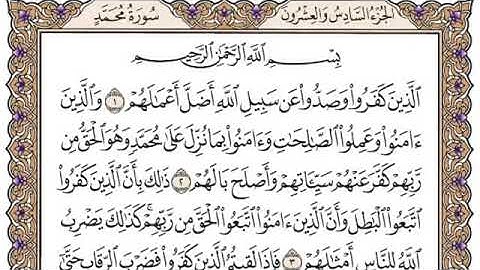 الجزء السادس والعشرون سورة محمد
بِسْمِ ٱللَّهِ ٱلرَّحْمَٰنِ ٱلرَّحِيمِ
ٱلَّذِينَ كَفَرُواْ وَصَدُّواْ عَن سَبِيلِ ٱللَّهِ أَضَلَّ أَعْمَٰلَهُمْ ١ وَٱلَّذِينَ
ءَامَنُواْ وَعَمِلُواْ ٱلصَّٰلِحَٰتِ وَءَامَنُواْ بِمَا نُزِّلَ عَلَىٰ مُحَمَّدٍ وَهُوَ ٱلْحَقُّ مِن
رَّبِّهِمْ كَفَّرَ عَنْهُمْ سَيِّـَٔاتِهِمْ وَأَصْلَحَ بَالَهُمْ ٢ ذَٰلِكَ بِأَنَّ ٱلَّذِينَ كَفَرُواْ
ٱتَّبَعُواْ ٱلْبَٰطِلَ وَأَنَّ ٱلَّذِينَ ءَامَنُواْ ٱتَّبَعُواْ ٱلْحَقَّ مِن رَّبِّهِمْ ۚ كَذَٰلِكَ يَضْرِبُ
ٱللَّهُ لِلنَّاسِ أَمْثَٰلَهُمْ ٣ فَإِذَا لَقِيتُمُ ٱلَّذِينَ كَفَرُواْ فَضَرْبَ ٱلرِّقَابِ حَتَّىٰٓ